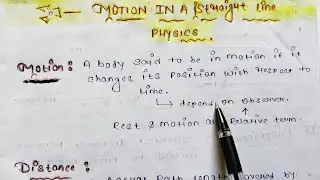 MOTION IN A Straight line
PHYSICS.
Motion: A body said to be in motion if it
changes its position with respect to
time.
↳ depend on observer.
Rest & motion are Relative term.
Distance: Actual Path length covered by